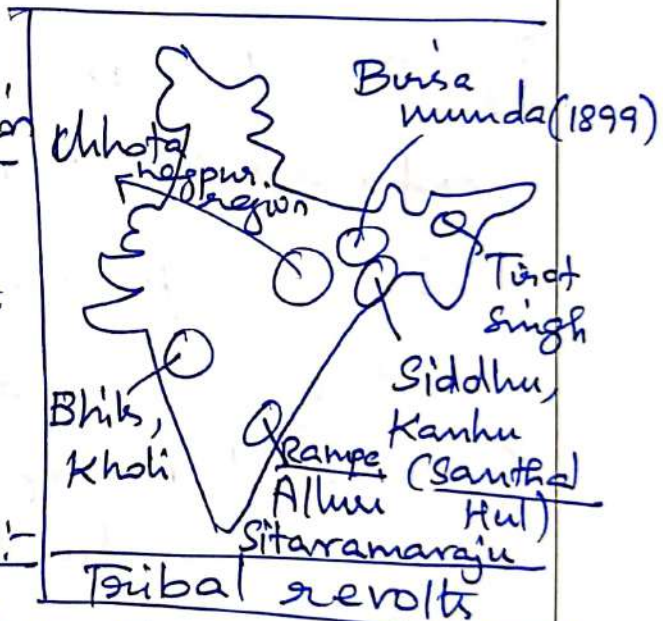 Birsa
munda (1899)
Chhota
nagpur
region
Tirot
Singh
Siddhu,
Kanhu
(Santhal
Hul)
Bhils,
Kholi
Rampa
Alluri
Sitaramaraju
Tribal revolts